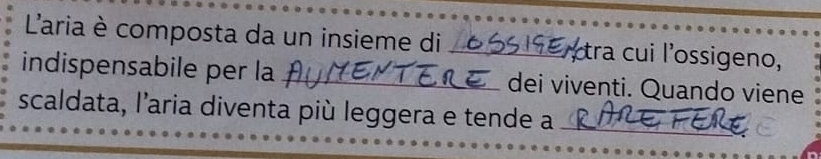 L'aria è composta da un insieme di OSSIGEN tra cui l'ossigeno,
indispensabile per la AUMENTERE dei viventi. Quando viene
scaldata, l'aria diventa più leggera e tende a RAREFERE.